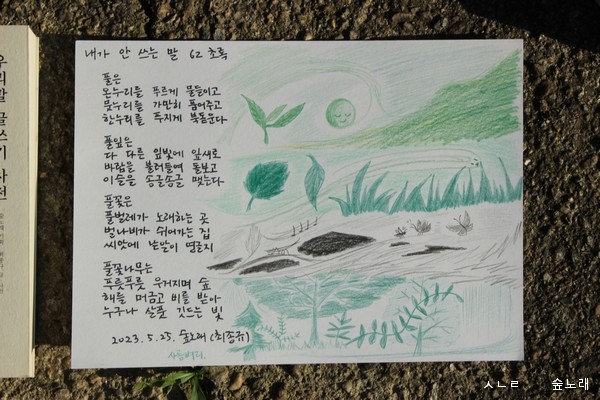 우리말 글쓰기 사전
내가 안 쓰는 말 62 초록
풀은
온누리를 푸르게 물들이고
뭇누리를 가만히 품어주고
한누리를 두지게 북돋운다
풀잎은
다 다른 잎빛에 잎새로
바람을 불러들여 돌보고
이슬을 송글송글 맺는다
풀꽃은
풀벌레가 노래하는 곳
벌나비가 쉬어가는 집
씨앗에 낱알이 영글지
풀꽃나무는
푸릇푸릇 우거지며 숲
해를 머금고 비를 받아
누구나 살풋 깃드는 빛
2023.5.25. 숲노래 (최종규)
사름벼리.
ㅅㄴㄹ 숲노래